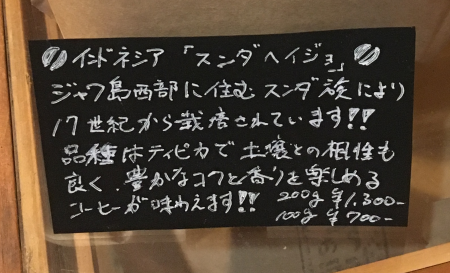 インドネシア 「スンダヘイジョ」
ジャワ島西部に住むスンダ族により
17世紀から栽培されています!!
品種はティピカで土壌との相性も
良く、豊かなコクと香りを楽しめる
コーヒーが味わえます!!
200g ¥1,300-
100g ¥700-